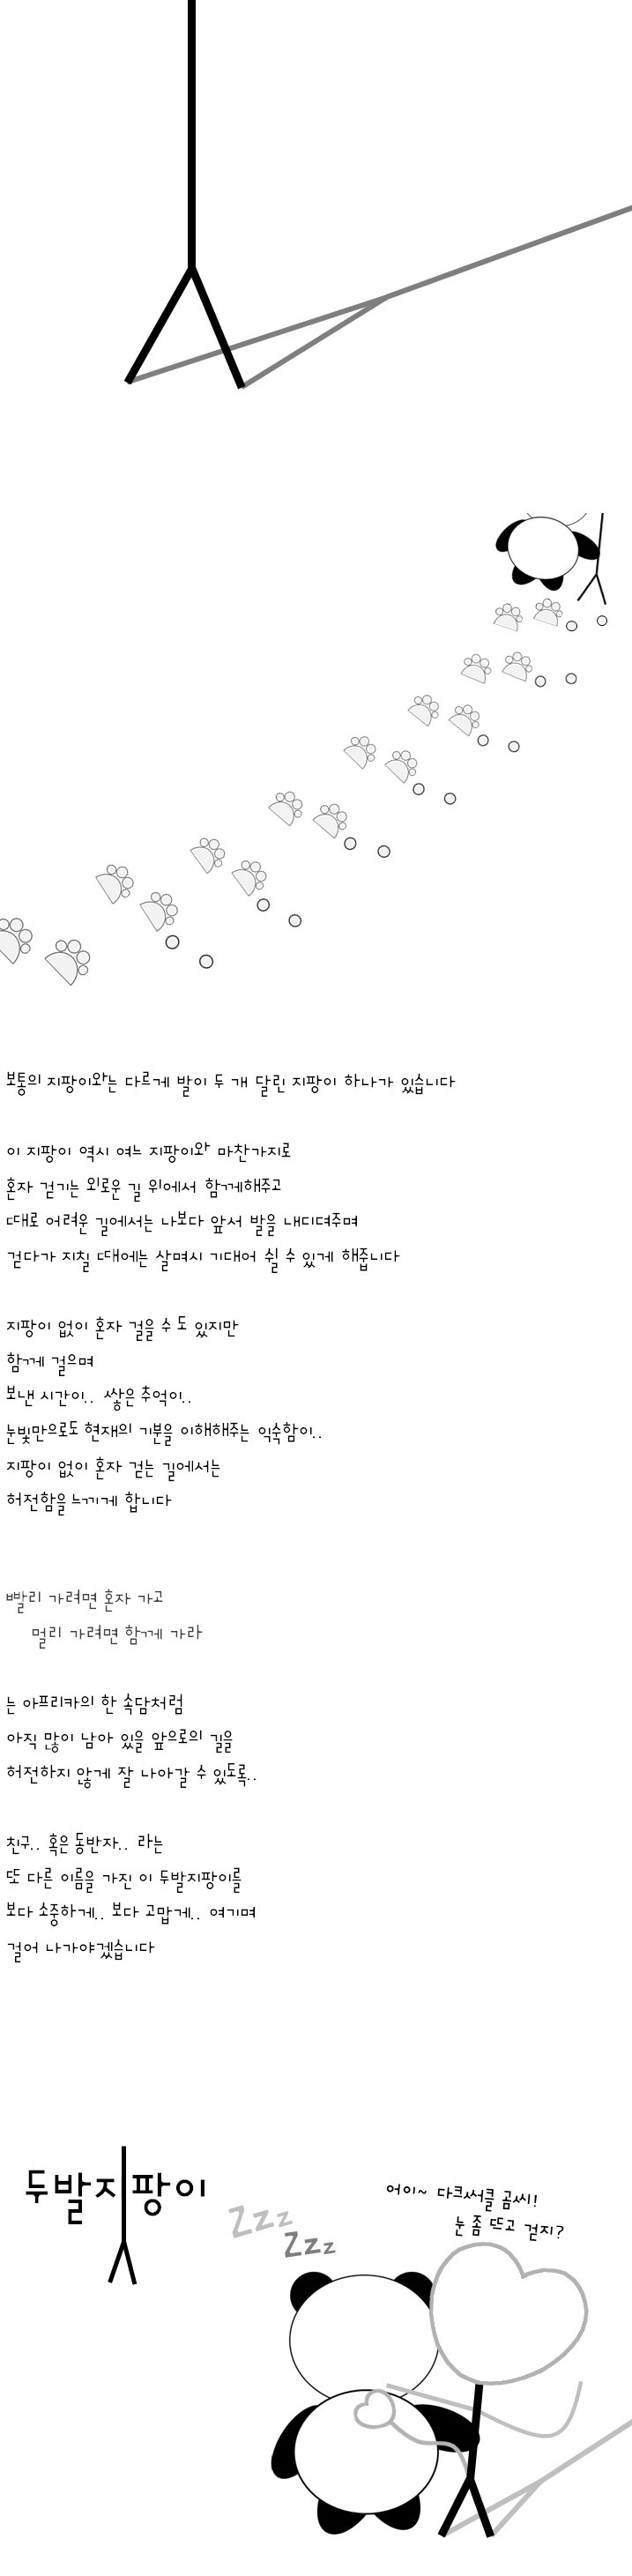 보통의 지팡이와는 다르게 발이 두 개 달린 지팡이 하나가 있습니다
이 지팡이 역시 여느 지팡이와 마찬가지로
혼자 걷기는 외로운 길 위에서 함께해주고
때로 어려운 길에서는 나보다 앞서 발을 내디뎌주며
걷다가 지칠 때에는 살며시 기대어 쉴 수 있게 해줍니다
지팡이 없이 혼자 걸을 수 도 있지만
함께 걸으며
보낸 시간이.. 쌓은 추억이..
눈빛만으로도 현재의 기분을 이해해주는 익숙함이..
지팡이 없이 혼자 걷는 길에서는
허전함을 느끼게 합니다
빨리 가려면 혼자 가고
멀리 가려면 함께 가라
는 아프리카의 한 속담처럼
아직 많이 남아 있을 앞으로의 길을
허전하지 않게 잘 나아갈 수 있도록..
친구.. 혹은 동반자.. 라는
또 다른 이름을 가진 이 두발지팡이를
보다 소중하게.. 보다 고맙게.. 여기며
걸어 나가야겠습니다
두발지팡이
어이~ 다크써클 곰씨!
눈 좀 뜨고 걷지?
Zzz
Zzz